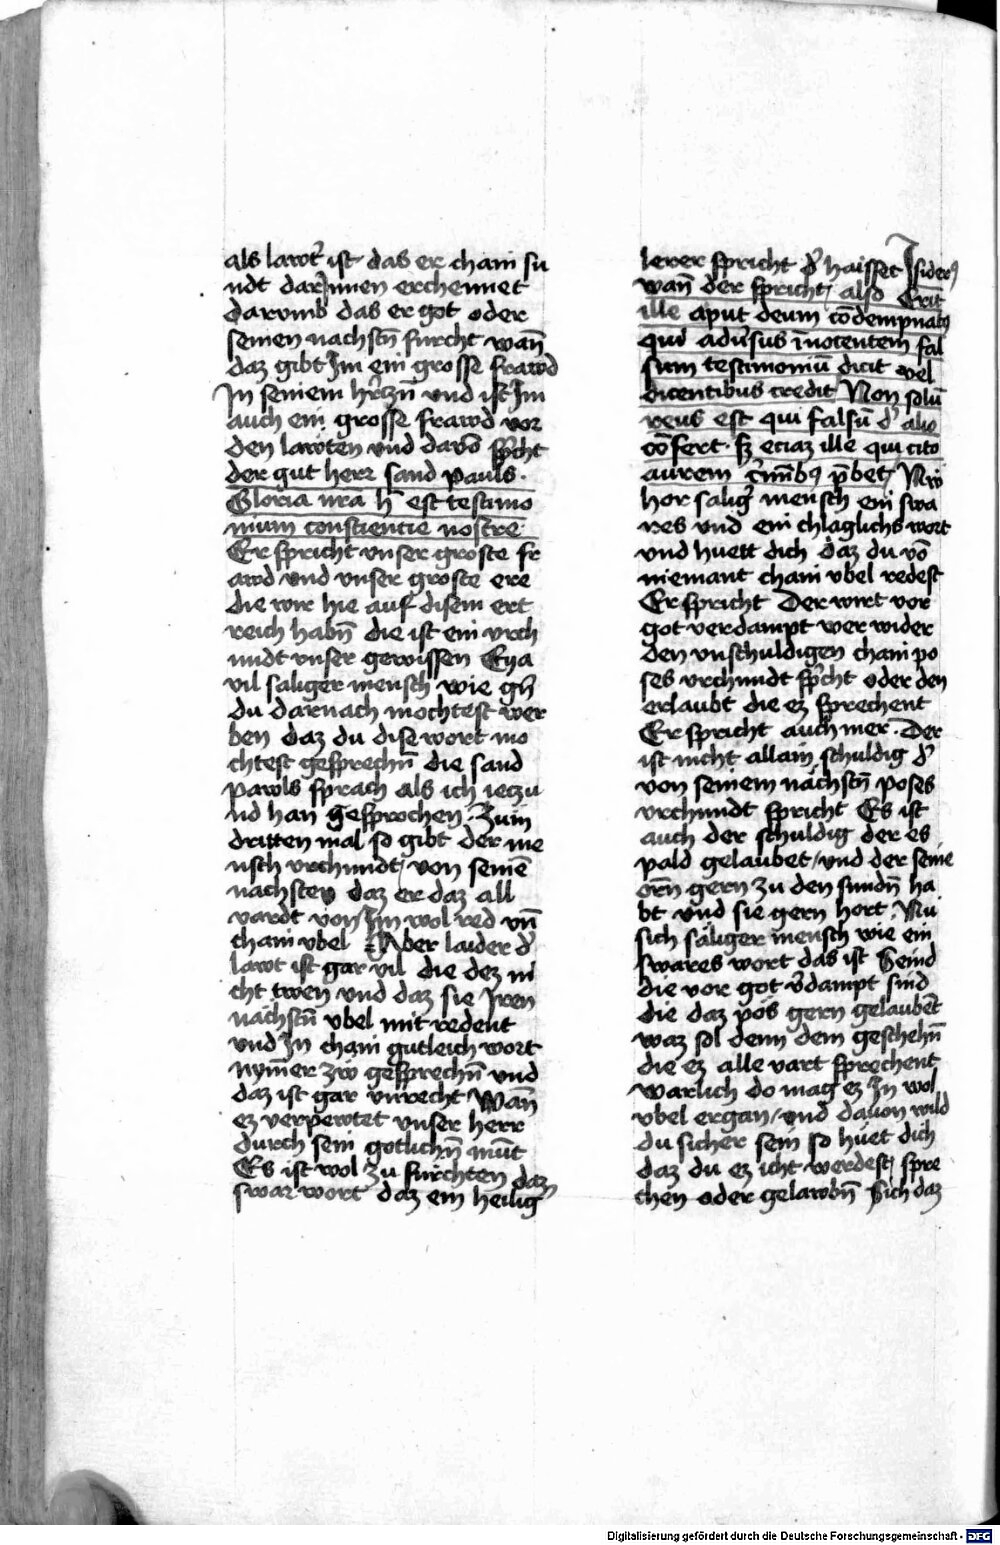 als lawt̉ ist das er chain su
ndt dar Innen erchennet
darvmb das er got oder
seinen nachstn̄ furcht wan̄
daz gibt Im ein grosse frawd
In seinem hr̉tzn̄ vnd ist Im
auch ein grosse frawd vor
den lawten vnd davō spͬcht
der gut herr sand pauls ·
Gloria nrā h̄ est testimo
nium conscientie nostre ·
Er spricht vnser groste fr
awd vnd vnser groste ere
die wir hie auf disem ert
reich habn̄ die ist ein vrch
undt vnser gewissen Eya
vil saliger mensch wie gn̄
du darnach mochtest wer
ben daz du dise wort mo
chtest gesprechn̄ die sand
pawls sprach als ich ieczu
nd han gesprochen · Zum
dritten mal so gibt der me
nsch vrchundt / von seinē
nachsten daz er daz all
vardt von Im wol red vn̄
chain vbel Aber laider d̉
lawt ist gar vil die dez ni
cht twen vnd daz sie Iren
nachstn̄ vbel mit redent
vnd In chain gutleich wort
nym̄er zw gesprechn̄ vnd
daz ist gar vnrecht Wan̄
ez verpewtet vnser herr
durch sein gotlichn̄ mūt
Es ist wol zu furchten daz
swar wort daz ein heilig
lerer spricht d̉ haisset Isiderꝰ
wan̄ der spricht / also Erit
ille aput deum cōdempnatꝰ
qui adu̓sus īnocentem fal
sum testimoniū dicit vel
dicentibus credit / Non solū
reus est qui falsū d̓ alio
ꝯfert · sꝫ eciaz ille qui cito
aurem cͥmībꝰ p̄bet / Nw
hor salig̓ mensch ein swa
res vnd ein chlaglichs wort
vnd huett dich daz du vō
niemant chain vbel redest
Er spricht Der wirt vor
got verdampt wer wider
den vnschuldigen chain po
ses vrchundt spͬcht oder den
erlaubt die ez sprechent
Er spricht auch mer · Der
ist nicht allain schuldig d̉
von seinem nachstn̄ poses
vrchundt spricht Es ist
auch der schuldig der es
pald gelaubet / vnd der seine
orn̄ gern zu den sundn̄ ha
bt vnd sie gern hort · Nu
sich säliger mensch wie ein
swares wort das ist Seind
die vor got v̉dampt sind
die daz pös gern gelaubēt
waz sol denn dem geschehn̄
die ez alle vart sprechent
warlich do mag ez In wol
vbel ergan / vnd dauon wild
du sicher sein so huet dich
daz du ez icht werdest / spre
chen oder gelawbn̄ Sich daz
Digitalisierung gefördert durch die Deutsche Forschungsgemeinschaft - DFG